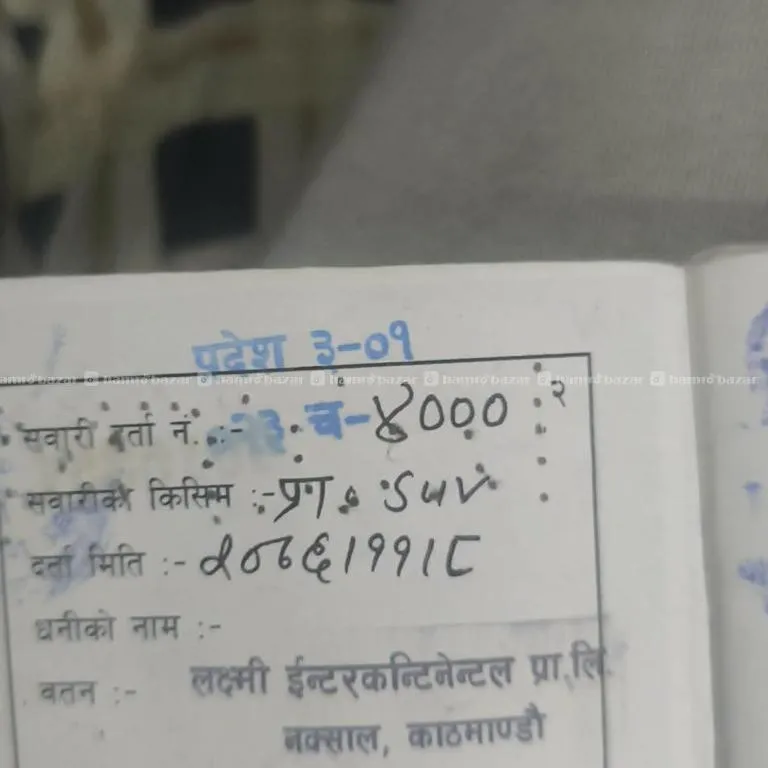 प्रदेश ३-०१
hamrobazar hamrobazar hamrobazar hamrobazar hamrobazar
२
सवारी दर्ता नं. :- २३ च-४०००
सवारीको किसिम :- प्रा. SUV
दर्ता मिति :- २०७६।११।८
धनीको नाम :-
वतन :- लक्ष्मी ईन्टरकन्टिनेन्टल प्रा.लि.
नक्साल, काठमाण्डौ